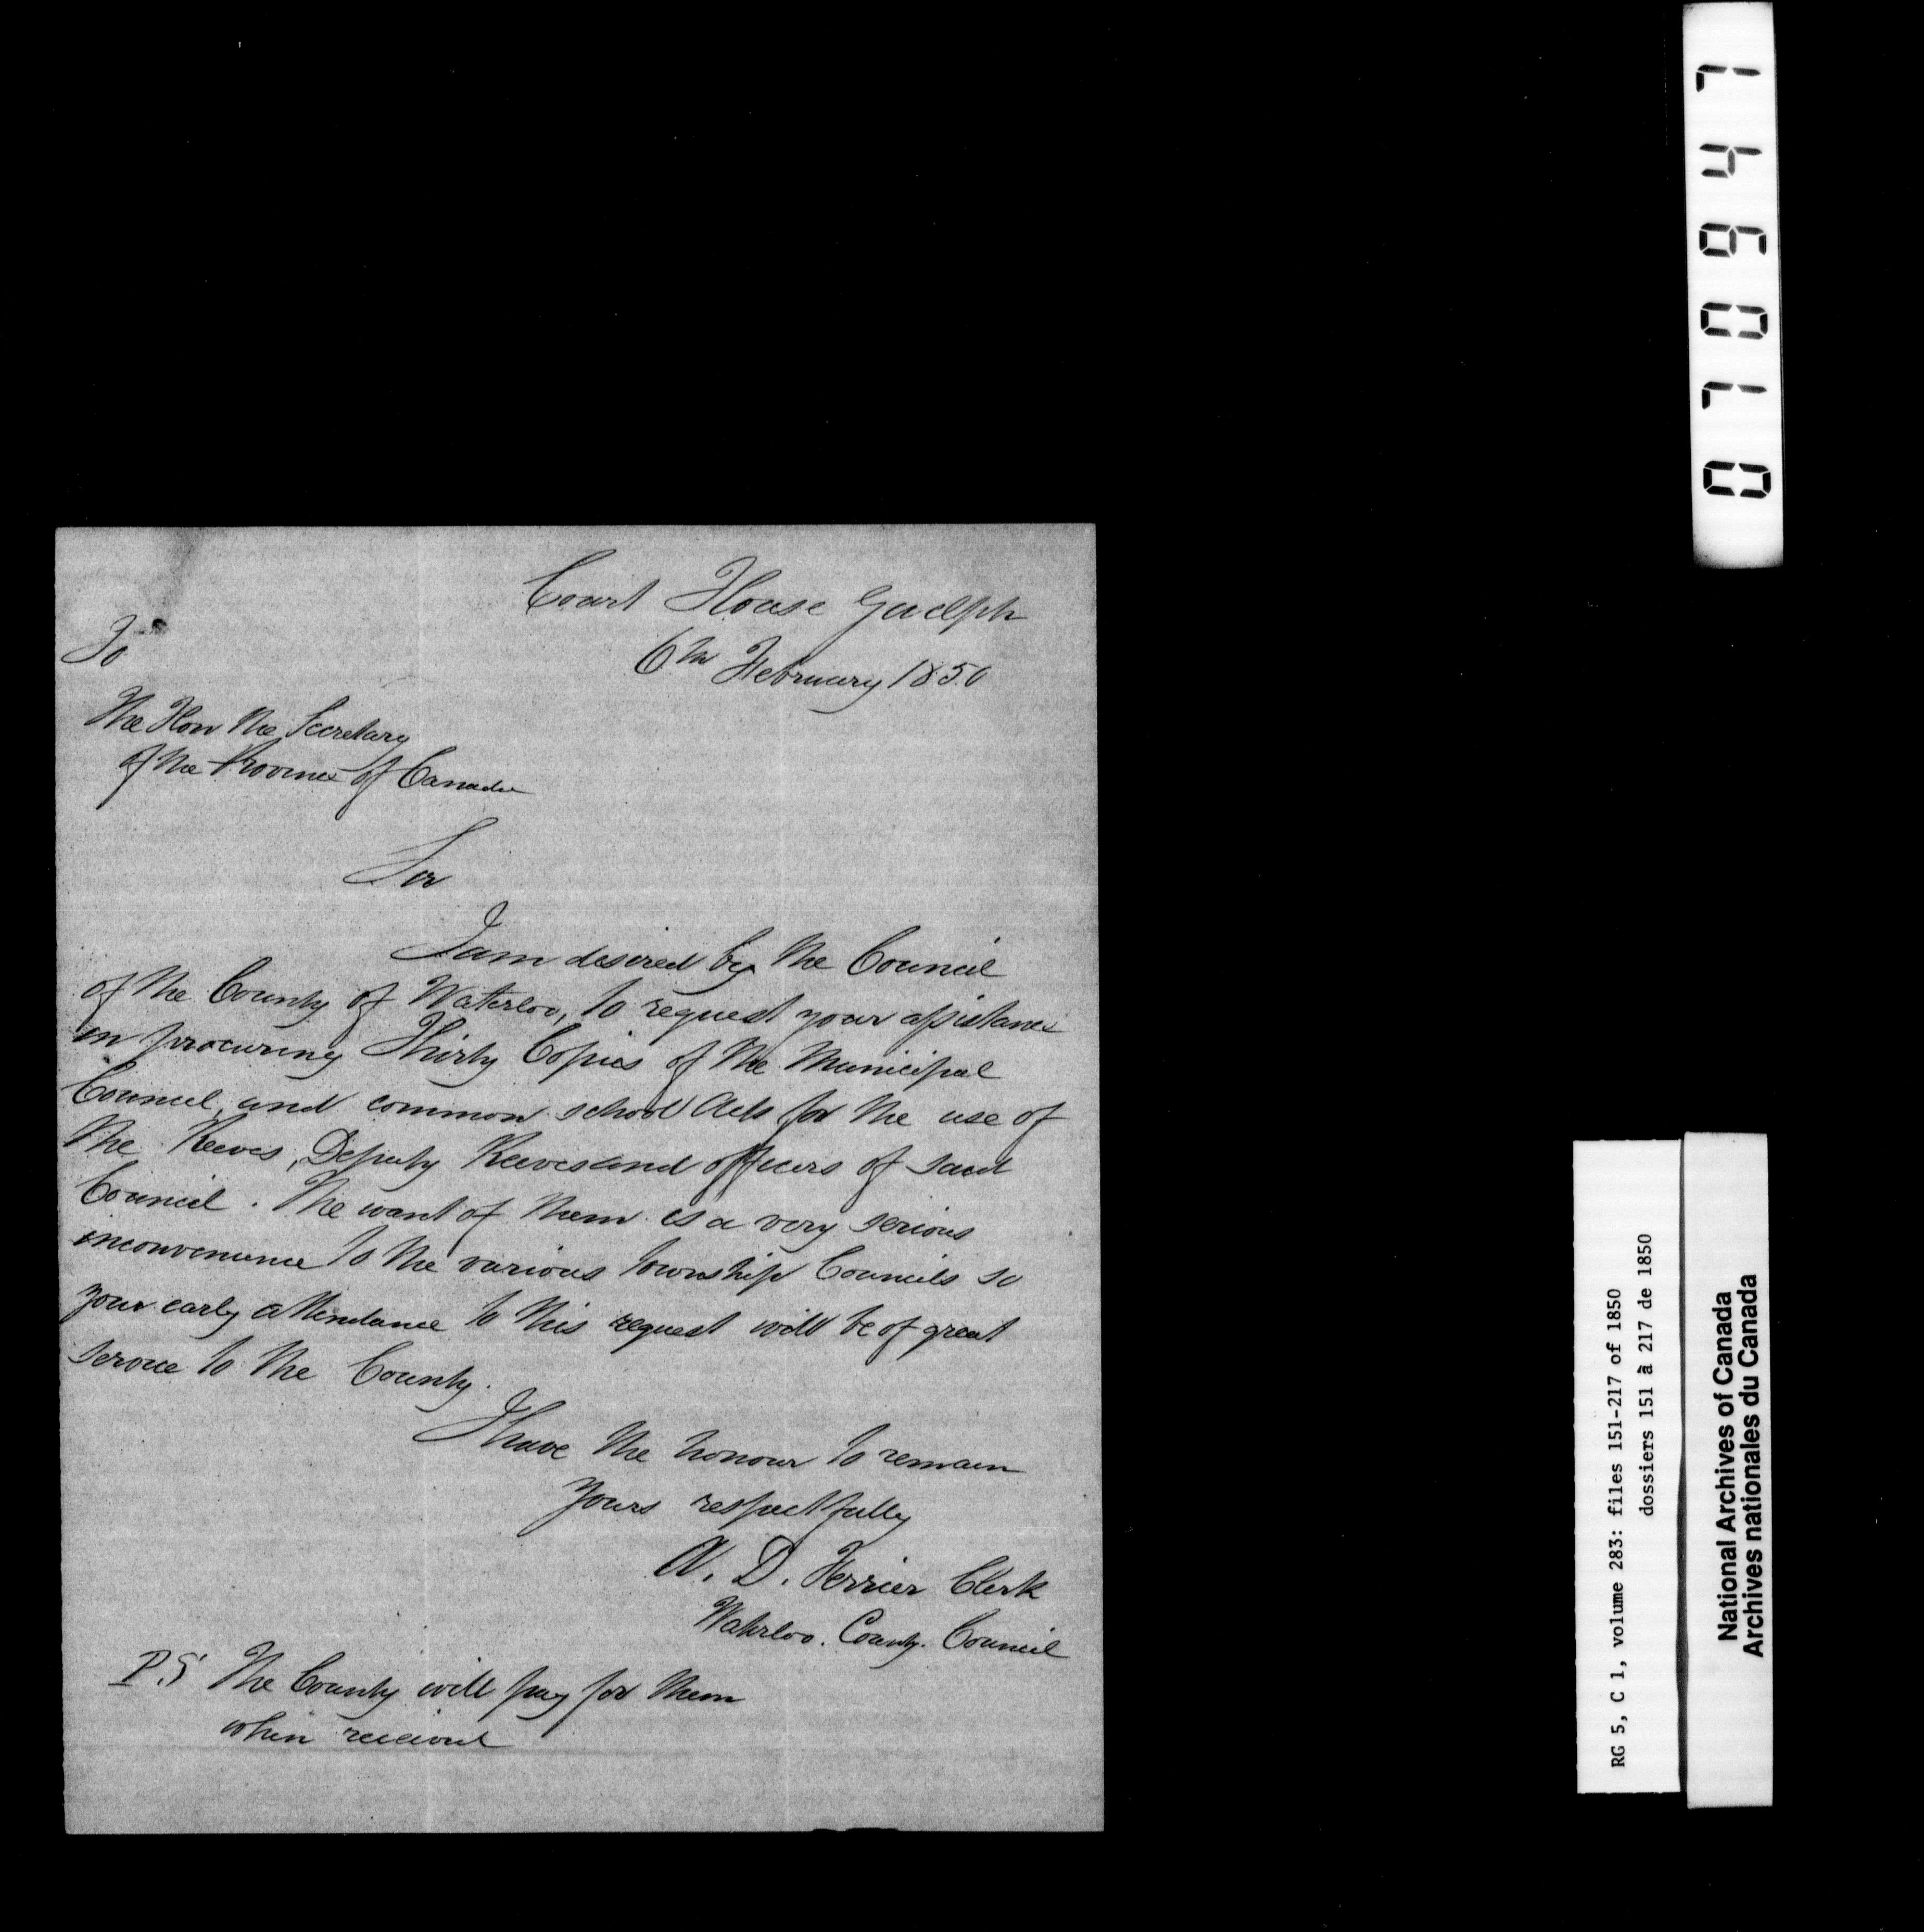 Court House Guelph
6th February 1850
To
The Hon the Secretary
of the Province of Canada
Sir
I am desired by the Council
of the County of Waterloo, to request your assistance
in procuring Thirty Copies of the Municipal
Council, and common school Acts for the use of
the Reeves, Deputy Reeves and officers of said
Council. The want of them is a very serious
inconvenience to the various township Councils so
your early attendance to this request will be of great
service to the County.
I have the honour to remain
yours respectfully
A. D. Ferrier Clerk
Waterloo. County. Council
P.S The County will pay for them
when received
071094 71
RG 5, C 1, volume 283: files 151-217 of 1850
dossiers 151 à 217 de 1850
National Archives of Canada
Archives nationales du Canada